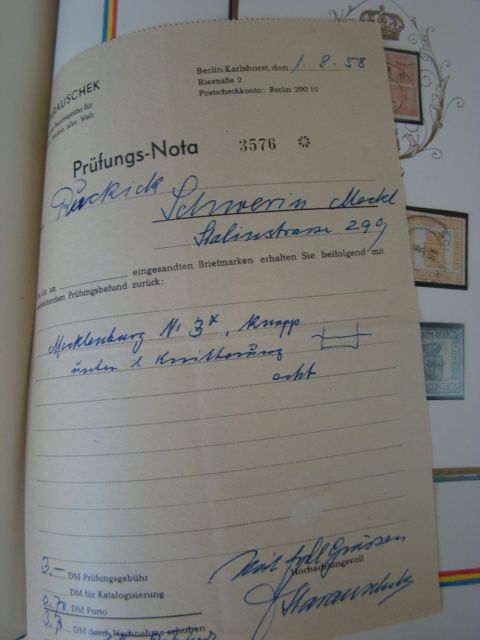 Berlin-Karlshorst, den 1. 8. 58
Riastraße 2
Postscheckkonto: Berlin 290 10
RAUSCHEK
für
aller Welt
Prüfungs-Nota 3576
Schwerin Meckl
Stalinstrasse 299
am eingesandten Briefmarken erhalten Sie beifolgend mit
Prüfungsbefund zurück:
Mecklenburg Nr 3x, knapp
unten & Knitterung
echt
Mit frdl Grüssen
Hochachtungsvoll
3.— DM Prüfungsgebühr
DM für Katalogisierung
0.70 DM Porto
3.70 DM durch Nachnahme erhoben